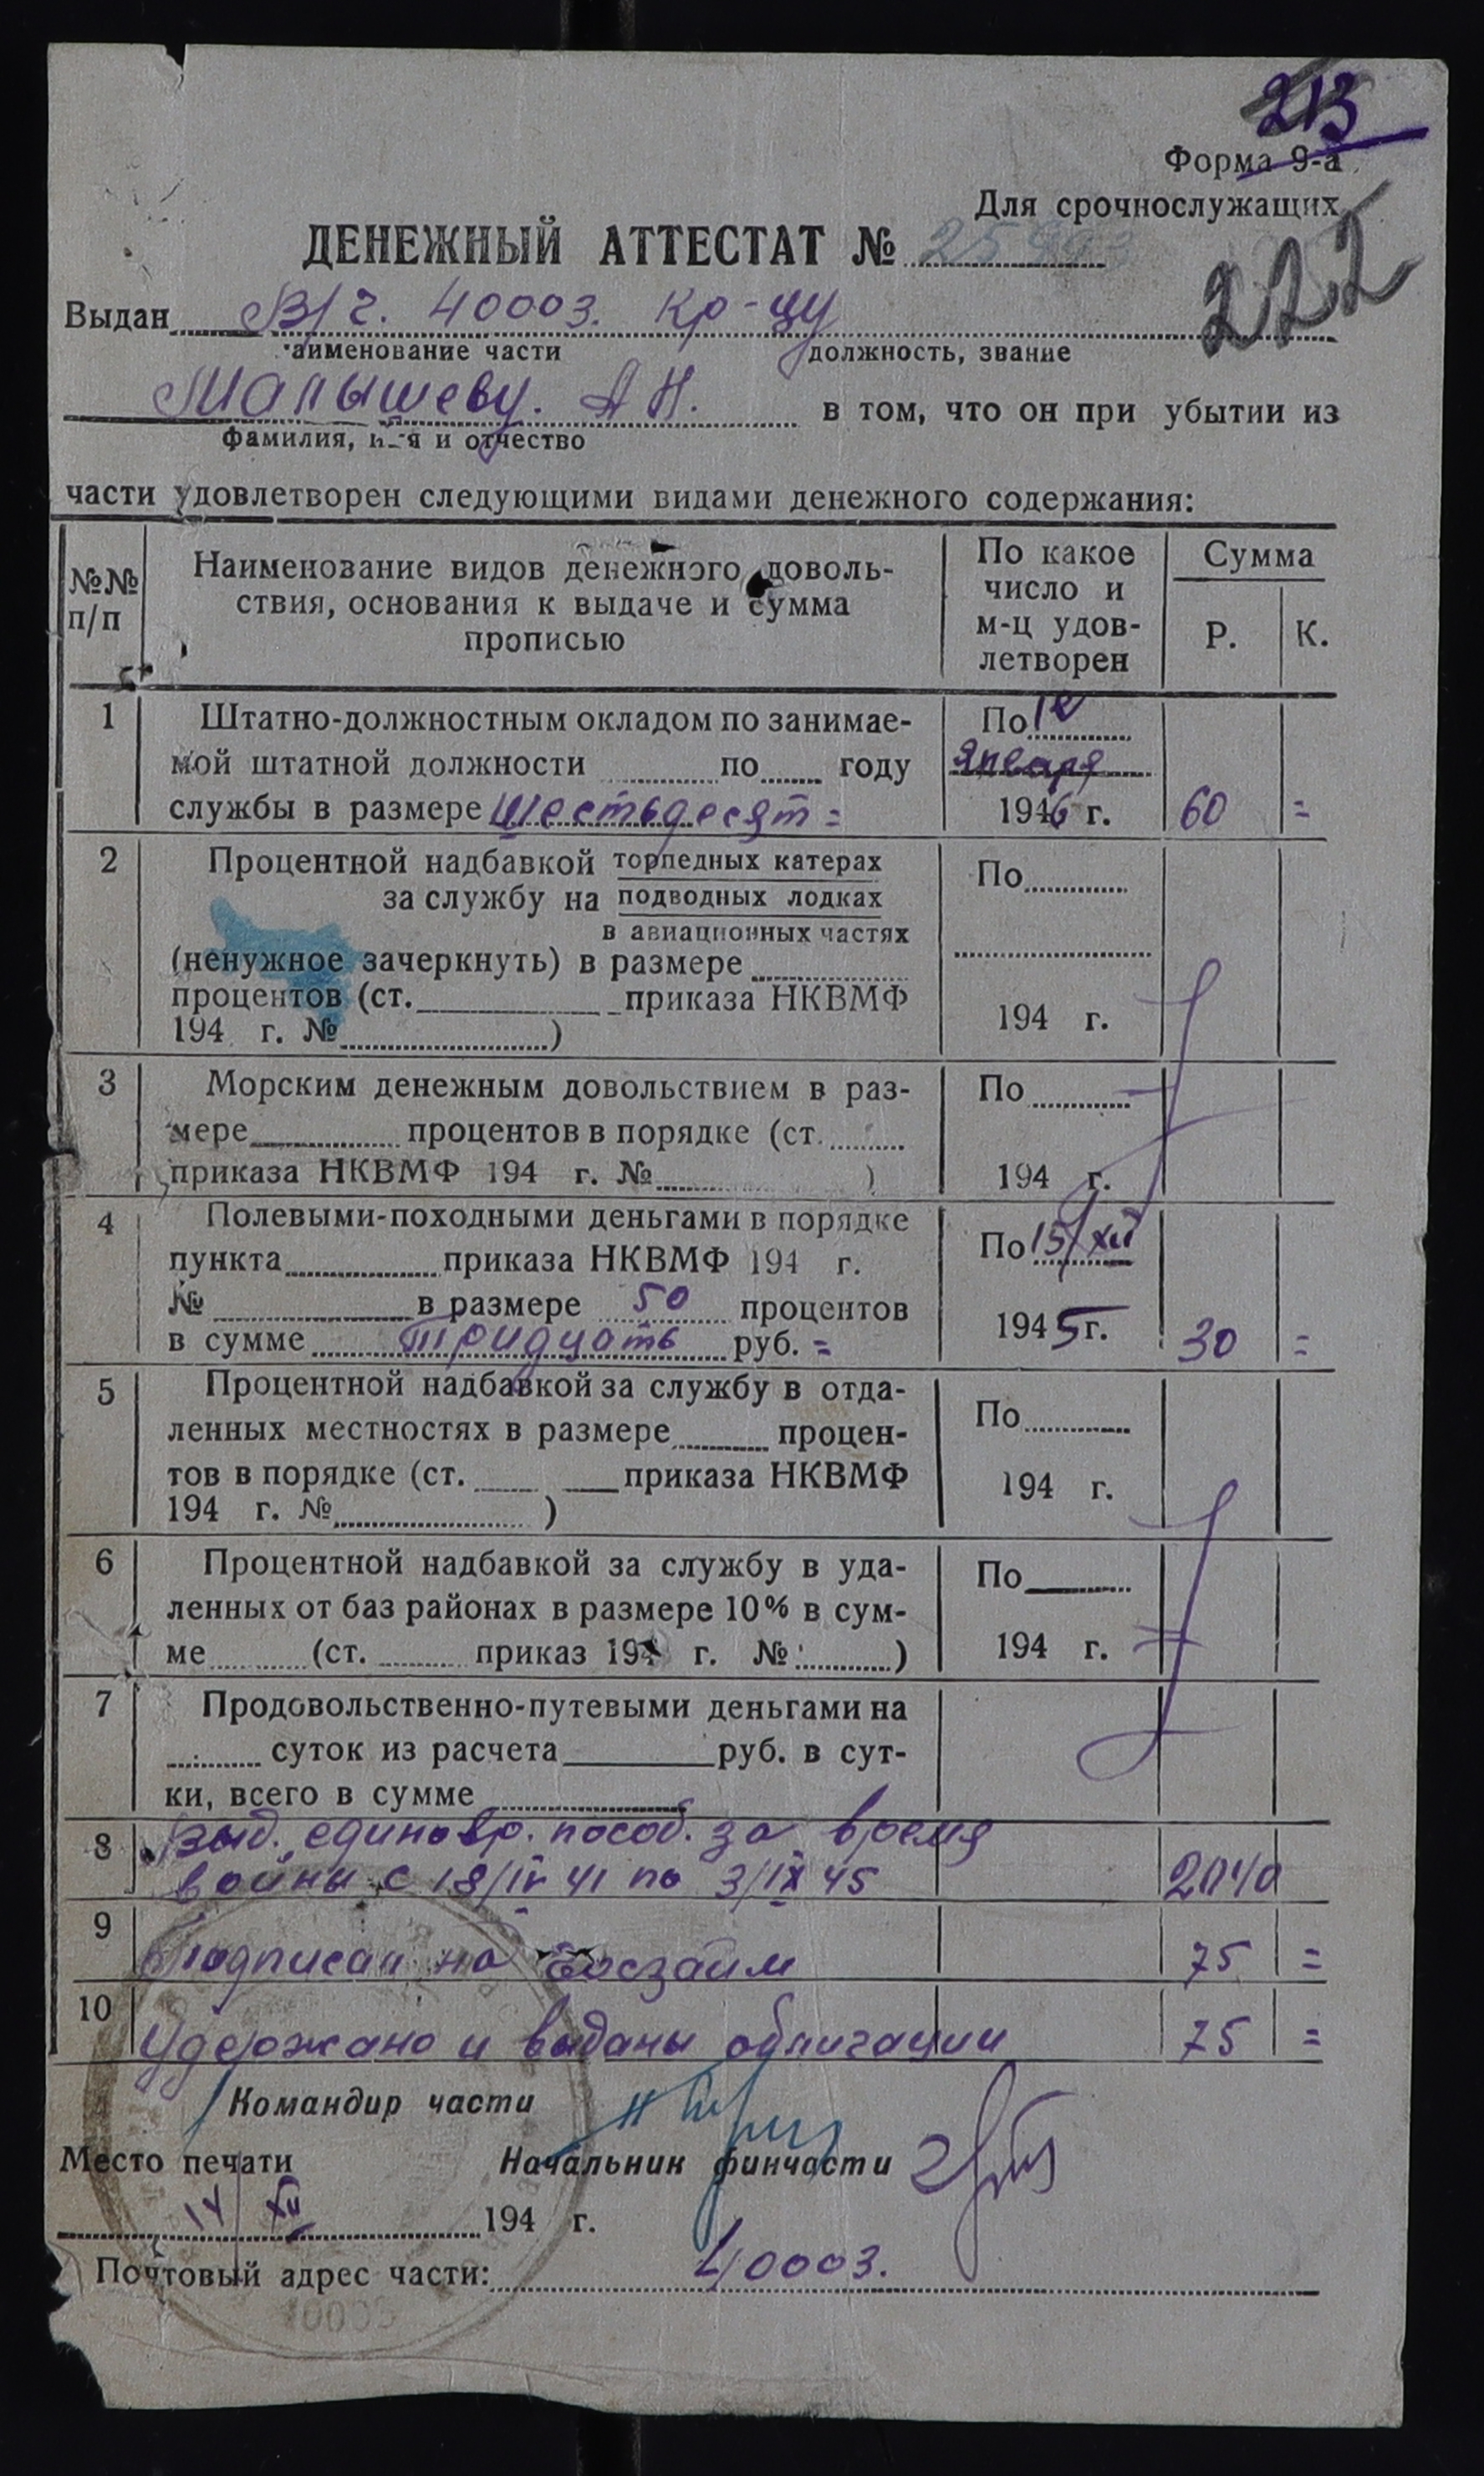 213
Форма 9-а
Для срочнослужащих
222
ДЕНЕЖНЫЙ АТТЕСТАТ №
Выдан В/ч. 40003. Кр-цу
наименование части должность, звание
Малышеву. А Н. в том, что он при убытии из
фамилия, имя и отчество
части удовлетворен следующими видами денежного содержания:
№№ п/п
Наименование видов денежного доволь-
ствия, основания к выдаче и сумма
прописью
По какое
число и
м-ц удов-
летворен
Сумма
Р. К.
1 Штатно-должностным окладом по занимае-
мой штатной должности по году
службы в размере Шестьдесят =
По 1е
января
1946 г. 60 =
2 Процентной надбавкой торпедных катерах
за службу на подводных лодках
в авиационных частях
(ненужное зачеркнуть) в размере
процентов (ст. приказа НКВМФ
194 г. № )
По
194 г.
3 Морским денежным довольствием в раз-
мере процентов в порядке (ст.
приказа НКВМФ 194 г. № )
По
194 г.
4 Полевыми-походными деньгами в порядке
пункта приказа НКВМФ 194 г.
№ в размере 50 процентов
в сумме тридцать руб. =
По 15/XII
1945 г. 30 =
5 Процентной надбавкой за службу в отда-
ленных местностях в размере процен-
тов в порядке (ст. приказа НКВМФ
194 г. № )
По
194 г.
6 Процентной надбавкой за службу в уда-
ленных от баз районах в размере 10% в сум-
ме (ст. приказ 194 г. № )
По
194 г.
7 Продовольственно-путевыми деньгами на
суток из расчета руб. в сут-
ки, всего в сумме
8 Выд. единовр. пособ. за время
войны с 18/IV 41 по 3/IX 45 2040
9 Подписан на Госзайм 75 =
10 Удержано и выданы облигации 75 =
Командир части
Место печати Начальник финчасти
14/XII 194 г.
Почтовый адрес части: 40003.